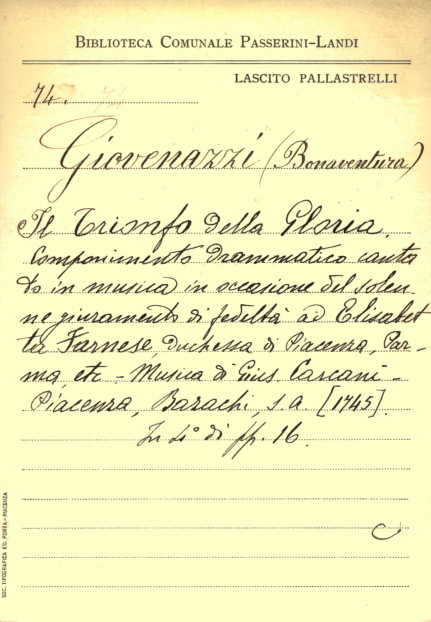 BIBLIOTECA COMUNALE PASSERINI-LANDI
LASCITO PALLASTRELLI
74.
Giovenazzi (Bonaventura)
Il Trionfo della Gloria.
Componimento drammatico canta
to in musica in occasione del solen-
ne giuramento di fedeltà ad Elisabet
ta Farnese, Duchessa di Piacenza, Par-
ma, etc - Musica di Gius. Carcani -
Piacenza, Bazachi, s.a. [1745].
In 4° di pp. 16.
C
SOC. TIPOGRAFICA ED. PORTA - PIACENZA